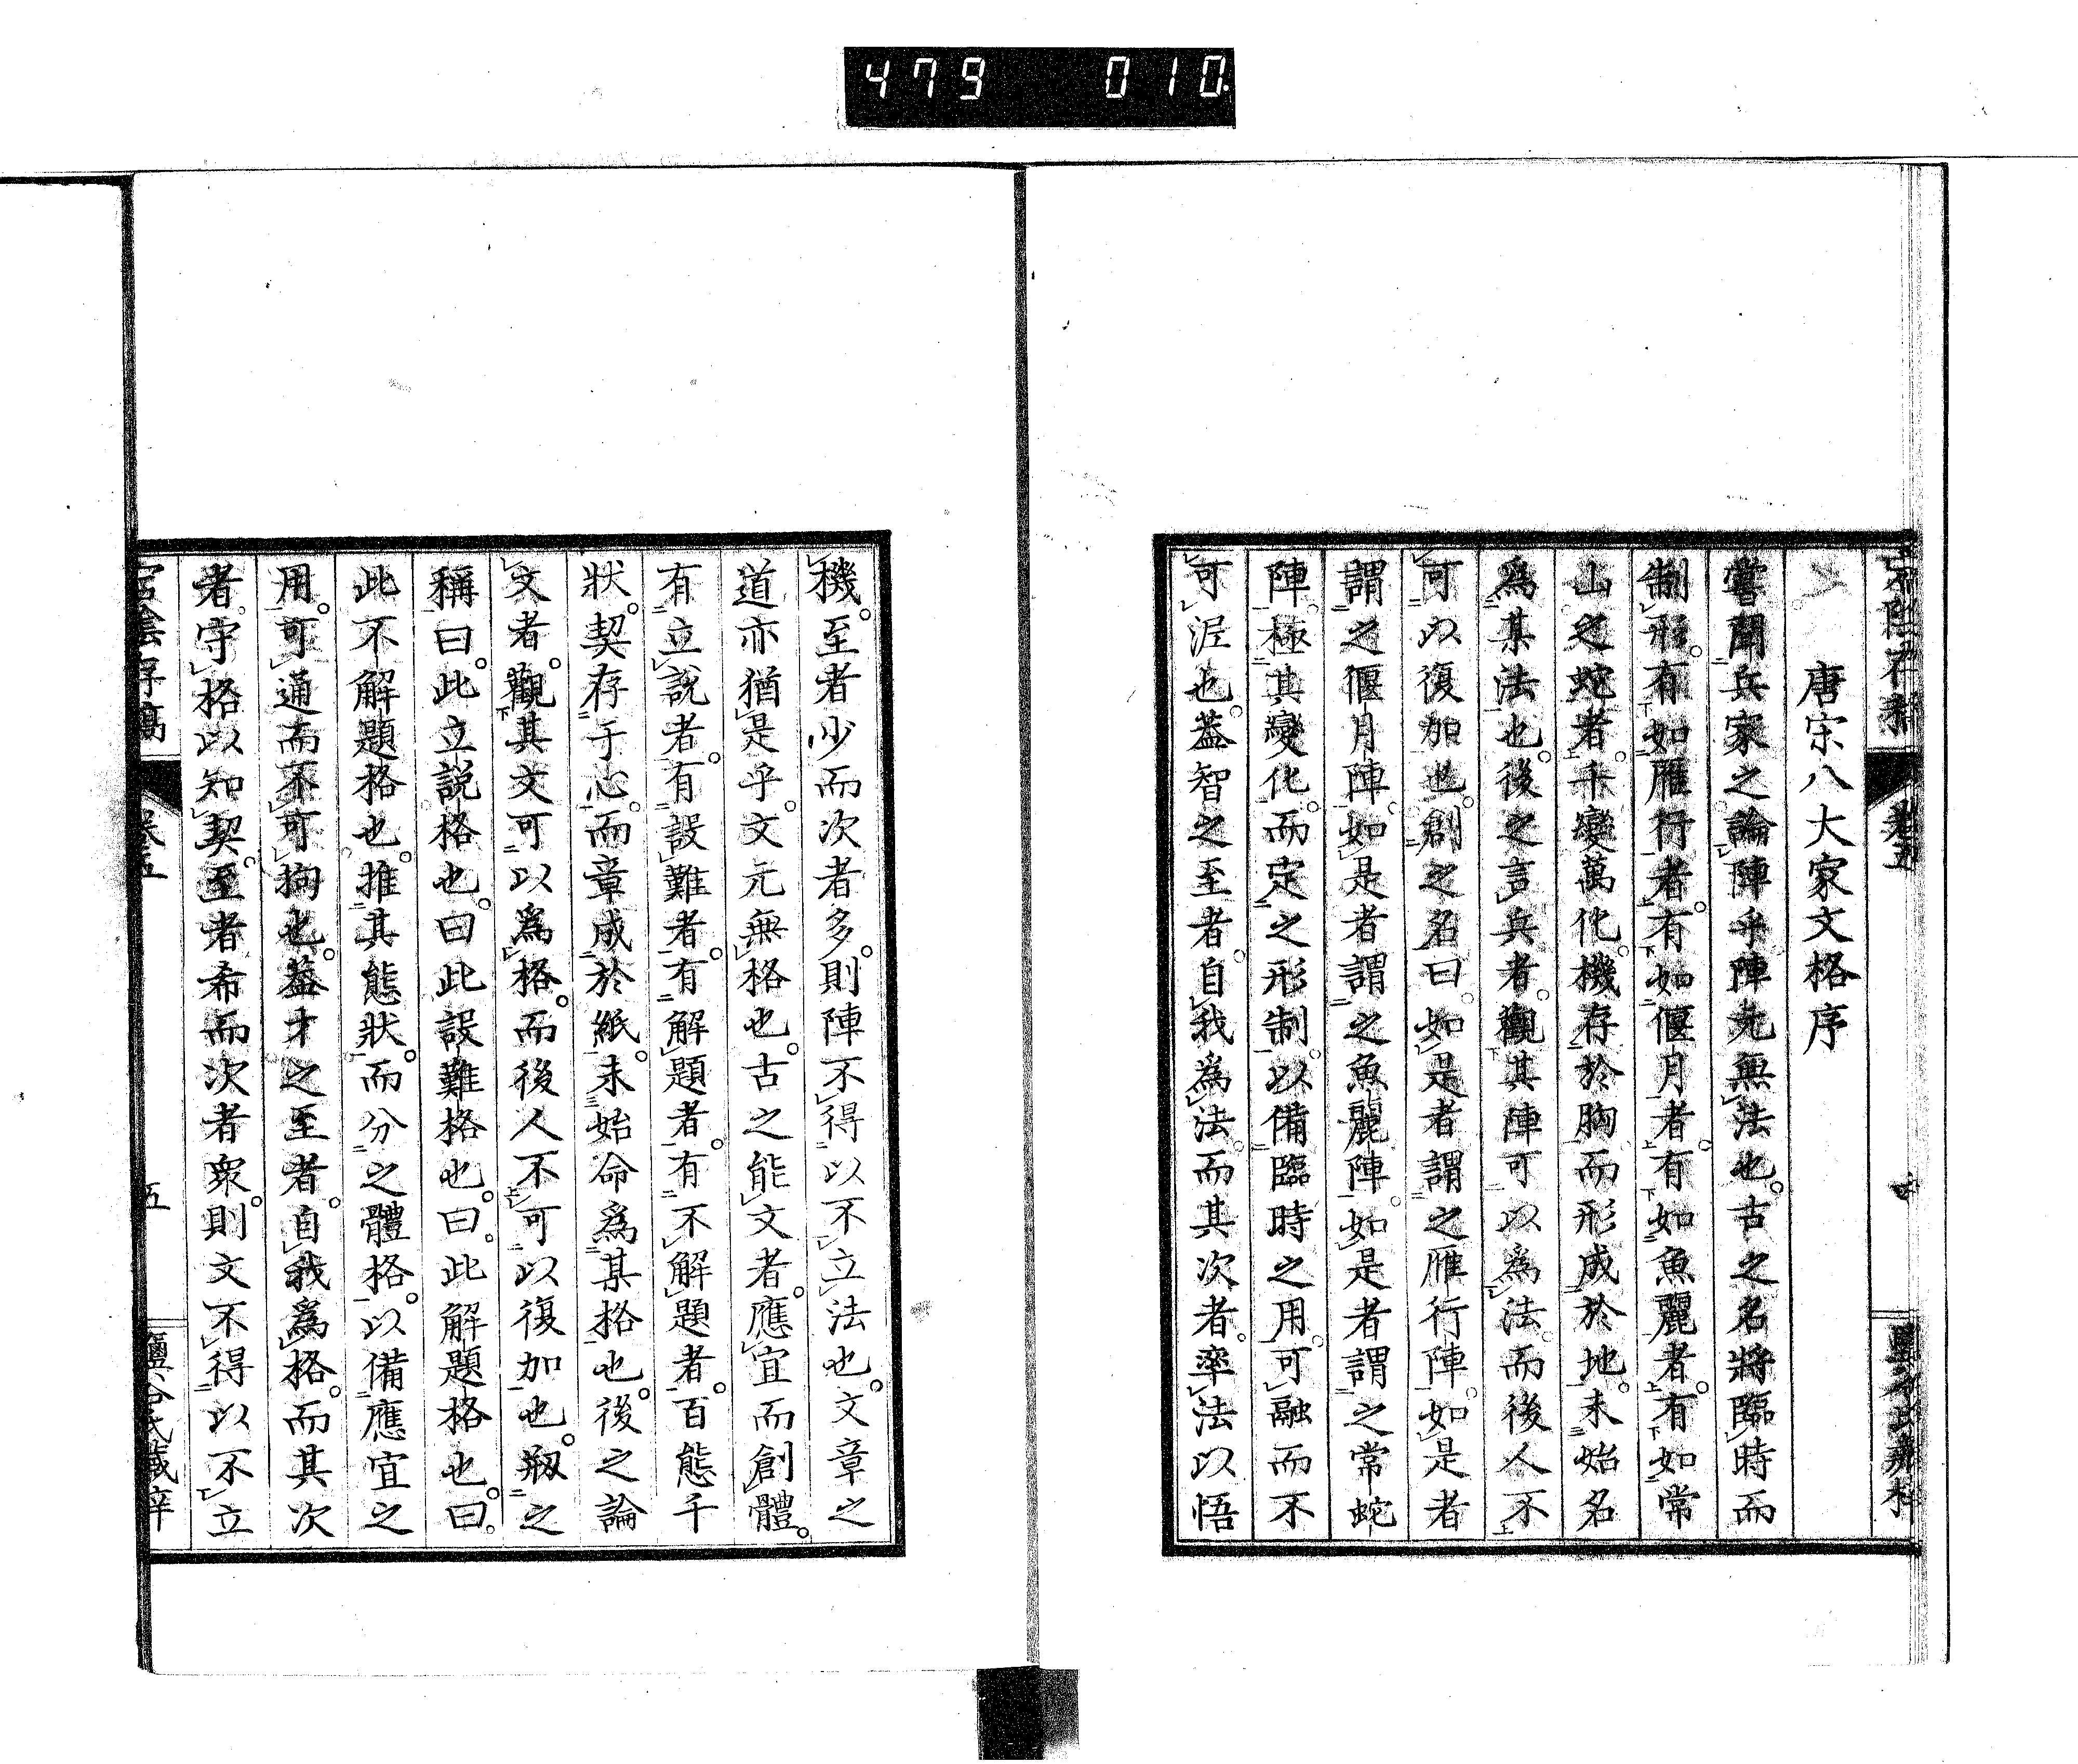 479 010
唐宋八大家文格序
嘗聞兵家之論陣乎陣元無法也。古之名將臨時而
制形。有如雁行者。有如偃月者。有如魚麗者。有如常
山之蛇者。千變萬化。機存於胸而形成於地。未始名
爲某法也。後之言兵者。觀其陣可以爲法而後人不
可以復加也。創之名曰。如是者謂之雁行陣。如是者
謂之偃月陣。如是者謂之魚麗陣。如是者謂之常蛇
陣。極其變化。而定之形制。以備臨時之用。可融而不
可泥也。蓋智之至者。自我爲法。而其次者。率法以悟
機。至者少而次者多。則陣不得以不立法也。文章之
道亦猶是乎。文元無格也。古之能文者。應宜而創體。
有立說者。有設難者。有解題者。有不解題者。百態千
狀。契存于心。而章成於紙。未始命爲某格也。後之論
文者。觀其文可以爲格。而後人不可以復加也。剏之
稱曰。此立說格也。曰此設難格也。曰。此解題格也。曰。
此不解題格也。推其態狀。而分之體格。以備應宜之
用。可通而不可拘也。蓋才之至者。自我爲格。而其次
者。守格以知契。至者希而次者衆。則文不得以不立
宕陰存稿 卷五 五 鹽谷氏藏梓